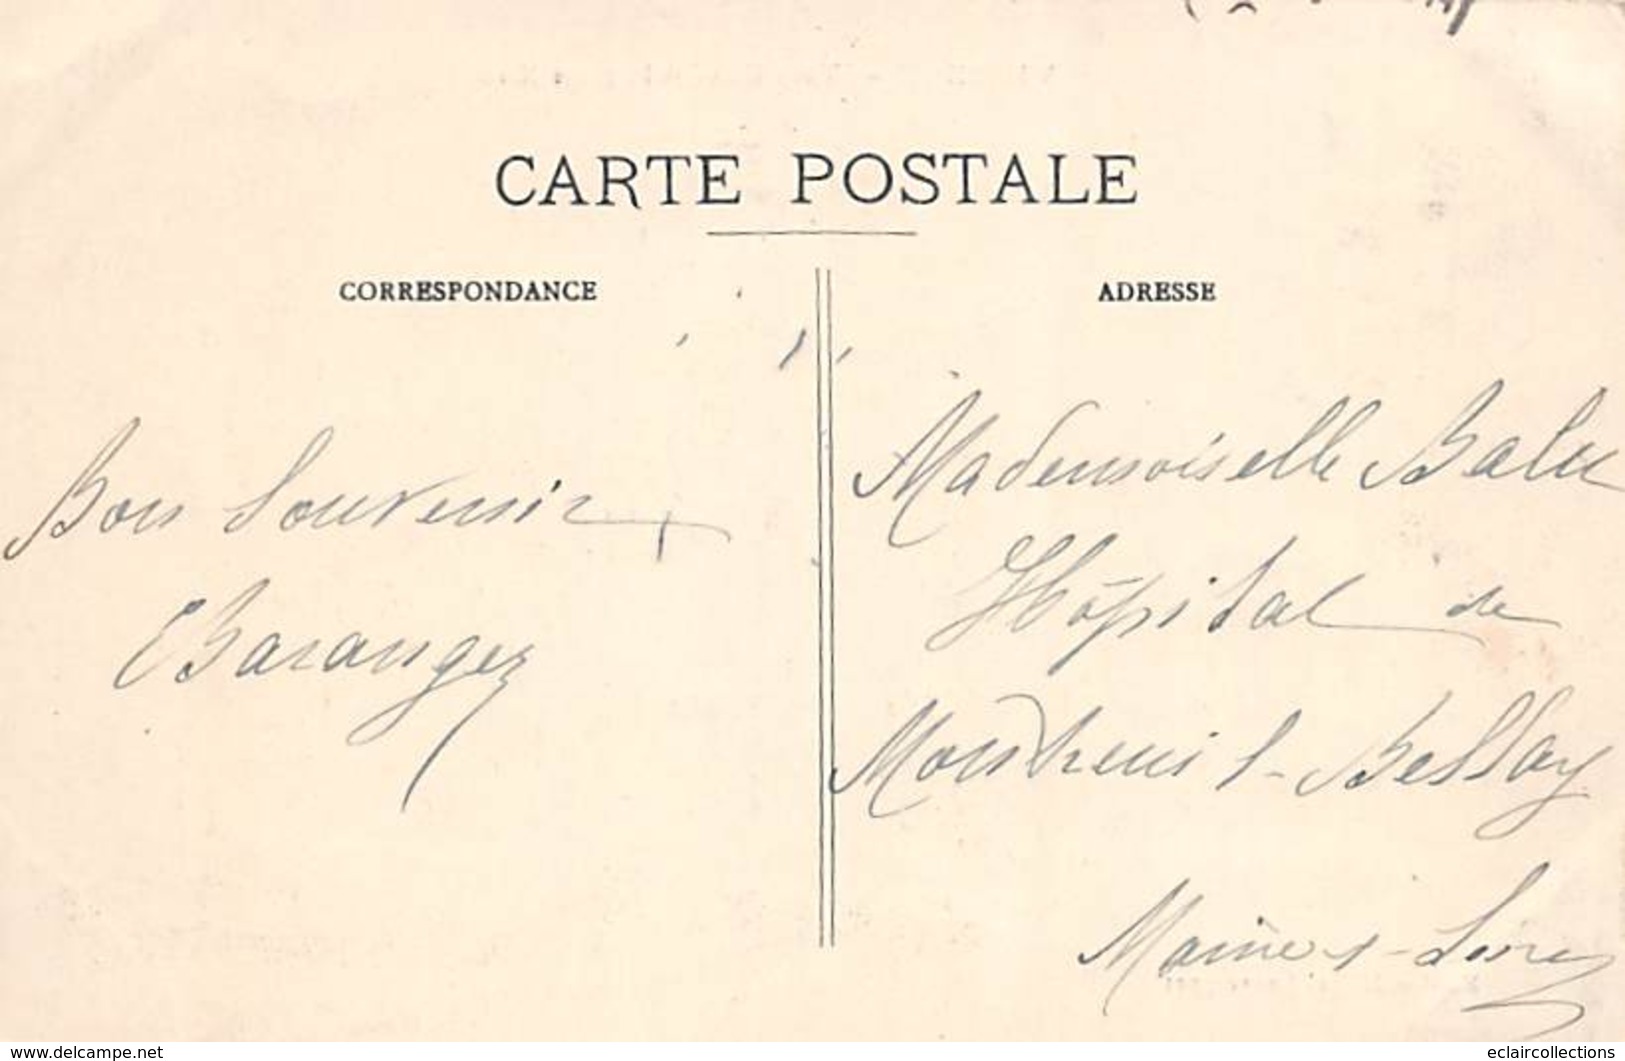 CARTE POSTALE
CORRESPONDANCE
ADRESSE
Bon Souvenir
EBaranger
Mademoiselle Balu
Hôpital de
Montreuil-Bellay
Maine & Loire
www.delcampe.net
eclaircollections